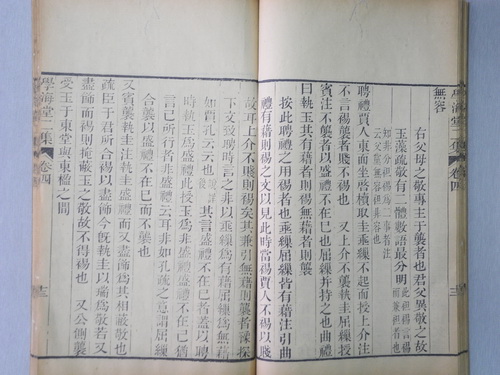 無容
右父母之敬專主于襲者也君父異敬之故
玉藻疏敬有二體數語最分明
聘禮賈人東面坐啓櫝取圭垂繅不起而授上介注
不言裼襲者賤不裼也 又上介不襲執圭屈繅授
賓注不襲者以盛禮不在已也屈繅并持之也曲禮
曰執玉其有藉者則裼無藉者則襲
按此聘禮之用裼者也垂繅屈繅皆有藉注引曲
禮有藉則裼之文以見此時當裼賈人不裼以賤
故耳上介不賤則裼矣其兼引無藉則襲者探
下文致聘時言之非垂繅為有藉屈繅為無藉
如賈孔云云也 其言盛禮不在已者蓋以
執玉為盛禮此授玉為非盛禮盛禮不在已猶
言已所行者非盛禮云耳非如孔疏之意謂屈繅
合襲以盛禮不在已而不襲也
又賓襲執圭注執圭盛禮而又盡飾為其相蔽敬也
疏臣于君所合裼以盡飾今旣執圭以瑞為敬若又
盡飾而裼則掩蔽玉之敬故不得裼也 又公側襲
受玉于中堂與東楹之間
學海堂二集 卷四